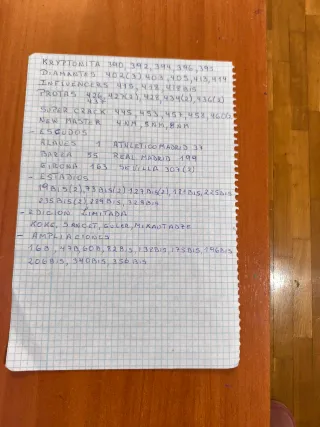 KRYPTONITA 390, 392, 394, 396, 397
DIAMANTES 402(3) 403, 405, 413, 414
INFLUENCERS 415, 418, 418 BIS
PROTAS 426, 427(2), 428, 434(2), 436(2)
437
SUPER CRACK 445, 453, 457, 458, 460
NEW MASTER 4NM, 5NM, 8NM
- ESCUDOS
ALAVES 1 ATHLETICO MADRID 37
BARZA 55 REAL MADRID 199
GIRONA 163 SEVILLA 307(2)
- ESTADIOS
19BIS(2), 73BIS(2) 127BIS(2), 181BIS, 225BIS
235BIS(2) 289BIS, 325BIS
- EDICION LIMITADA
KOKE, SANCET, GULER, MIKAUTADZE
- AMPLIACIONES
16B, 47B, 60B, 82BIS, 132BIS, 175BIS, 196BIS
206BIS, 340BIS, 350BIS